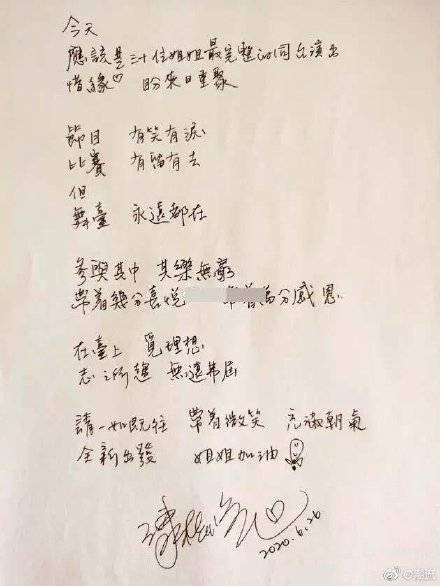 今天
應該是三十位姐姐最完整的同台演出
惜緣♡ 盼來日重聚
節目 有笑有淚
比賽 有留有去
但
舞臺 永遠都在
參與其中 其樂無窮
帶着幾分喜悅 帶着萬分感恩
在臺上 覓理想
志之所趨 無遠弗屆
請一如既往 帶着微笑 充滿朝氣
全新出發 姐姐加油
2020.6.26